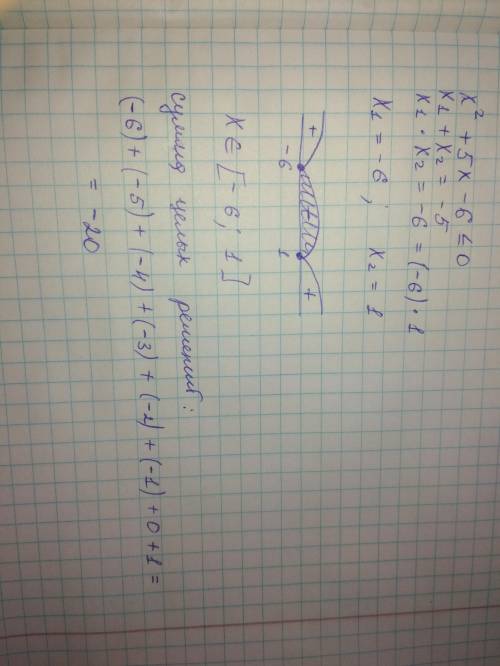 x² + 5x - 6 ≤ 0
x1 + x2 = -5
x1 · x2 = -6 = (-6) · 1
x1 = -6 ; x2 = 1
+ +
-6 1
x ∈ [-6; 1]
сумма целых решений:
(-6) + (-5) + (-4) + (-3) + (-2) + (-1) + 0 + 1 =
= -20